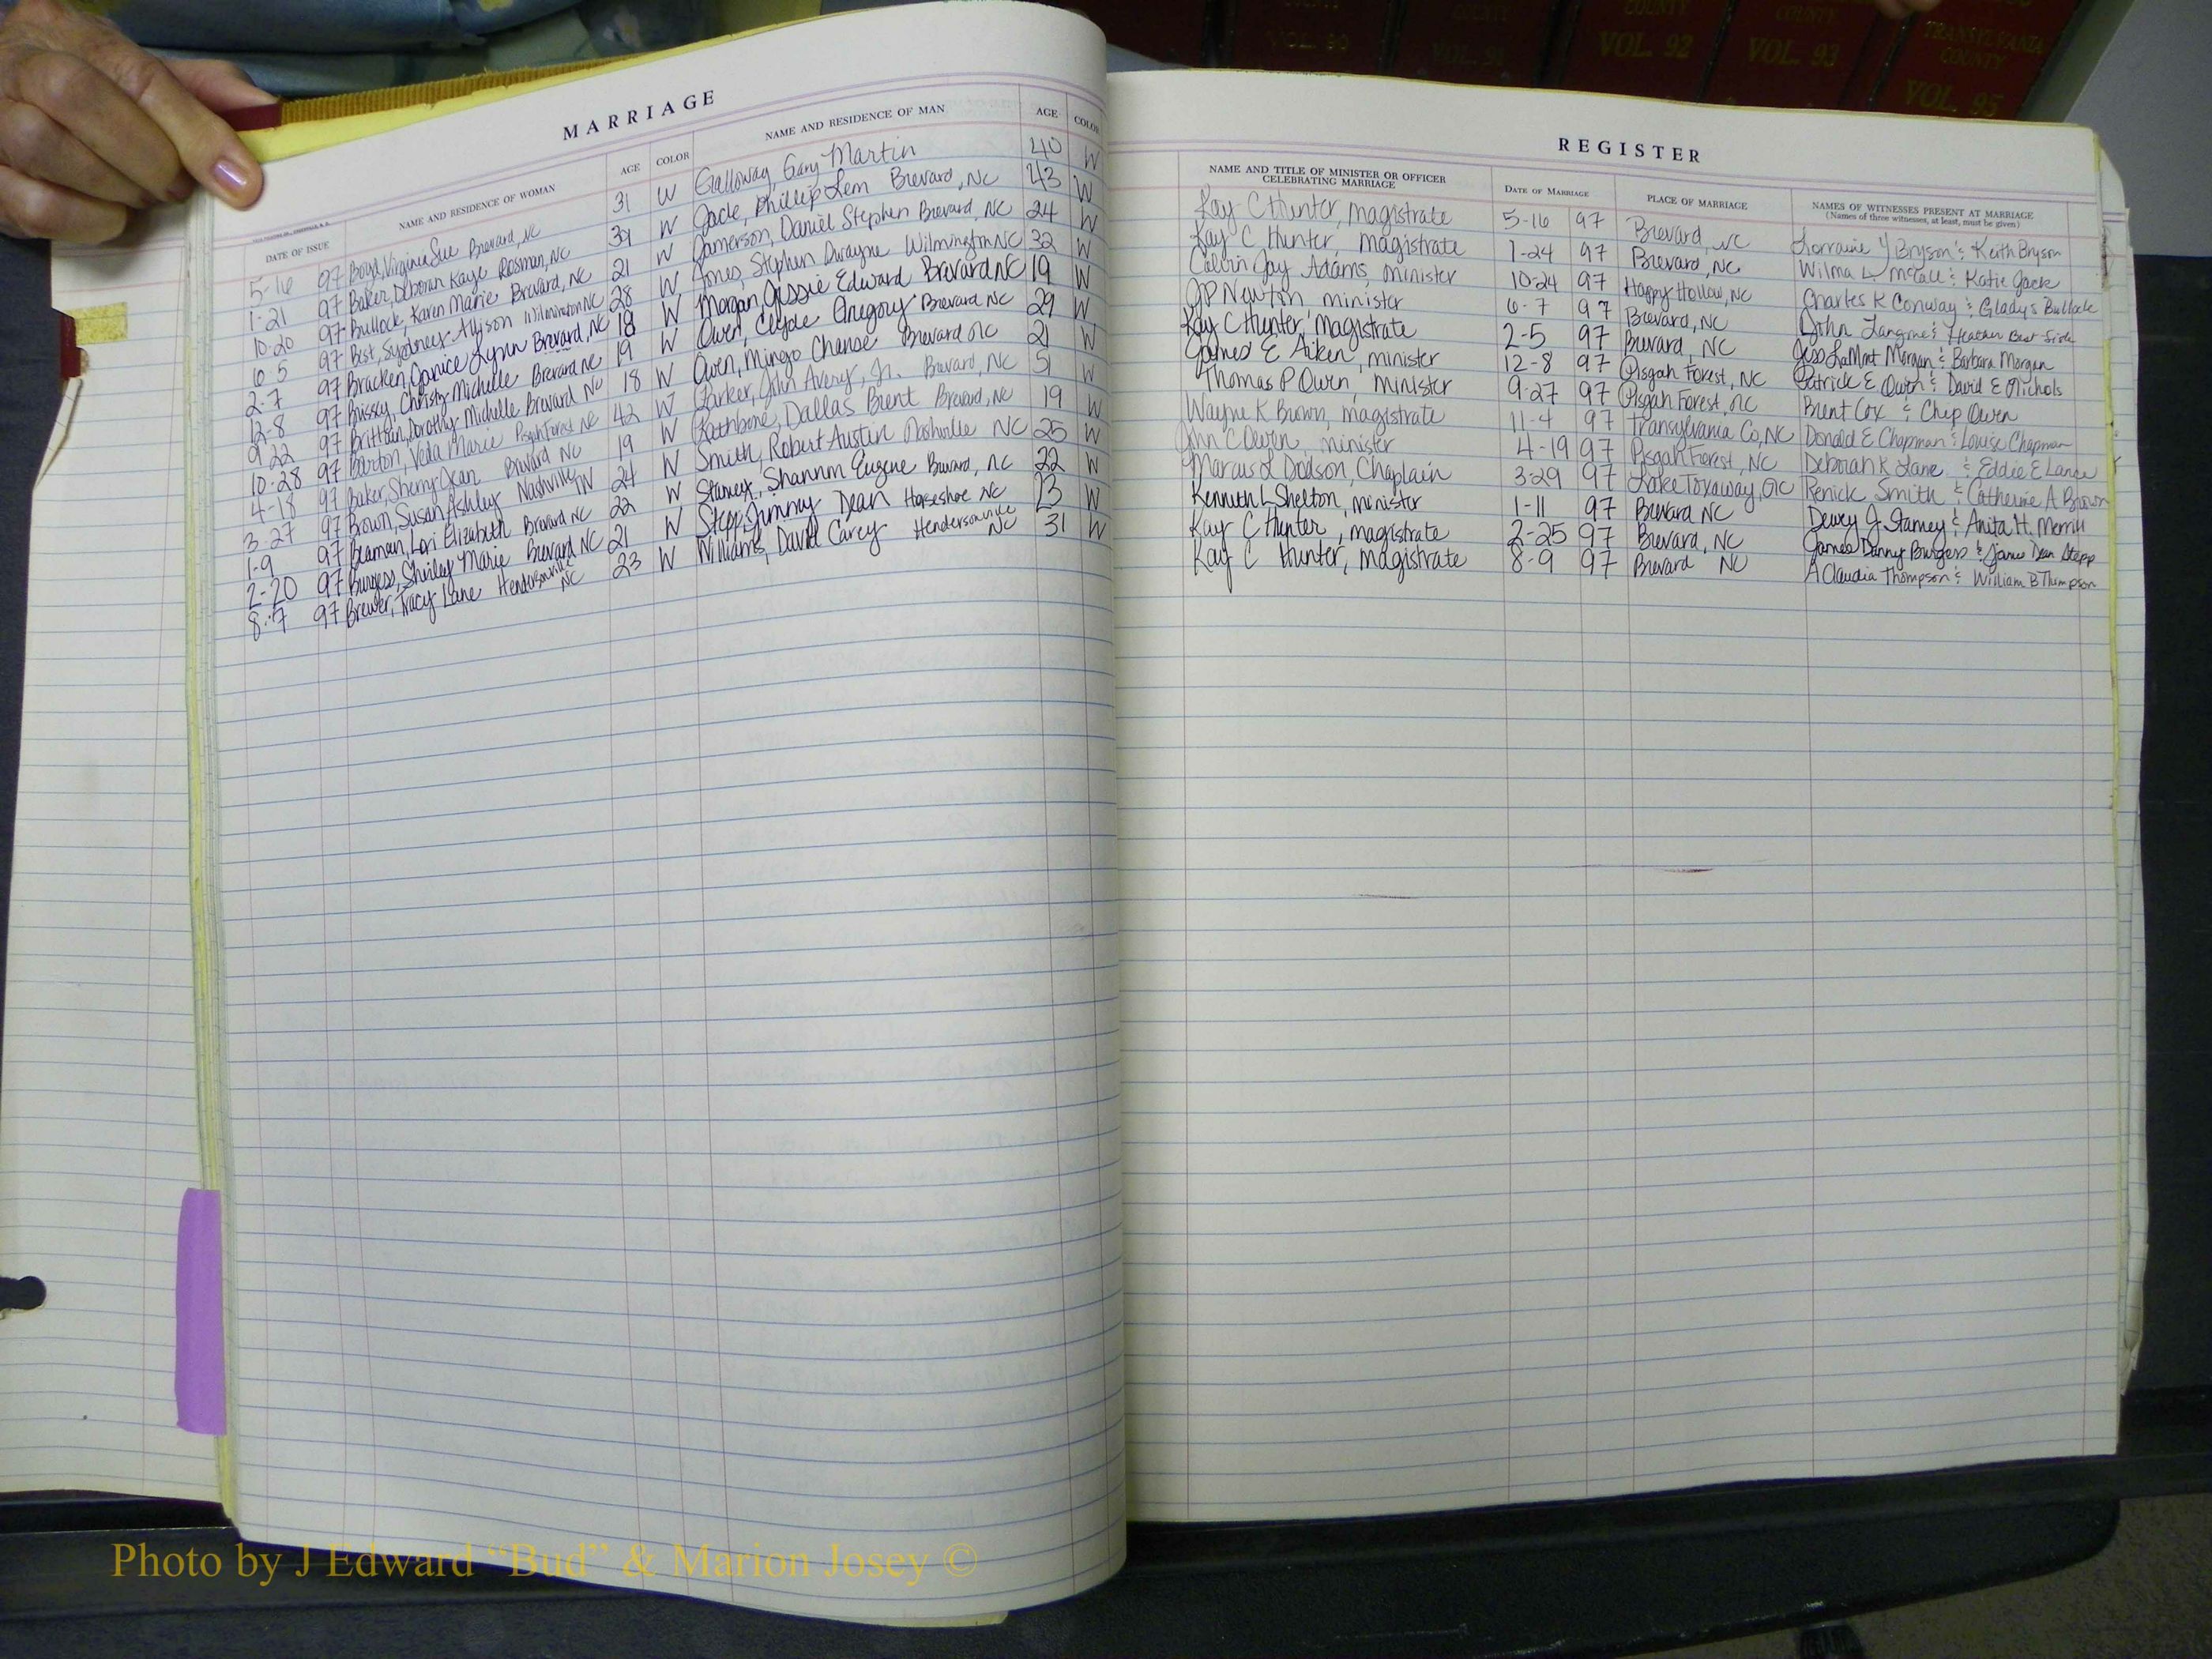 COUNTY COUNTY COUNTY COUNTY
VOL. 90 VOL. 91 VOL. 92 VOL. 93 TRANSYLVANIA COUNTY VOL. 95
MARRIAGE
DATE OF ISSUE NAME AND RESIDENCE OF WOMAN AGE COLOR NAME AND RESIDENCE OF MAN AGE COLOR
5-16 97 Boyd, Virginia Sue Brevard, NC 31 W Galloway, Gary Martin 40 W
1-21 97 Baker, Deborah Kaye Rosman, NC 39 W Jack, Phillip Lem Brevard, NC 43 W
10-20 97 Bullock, Karen Marie Brevard, NC 21 W Jamerson, Daniel Stephen Brevard, NC 24 W
6-5 97 Best, Sydney Allison Wilmington NC 28 W Jones, Stephen Dwayne Wilmington NC 32 W
2-7 97 Bracken, Janice Lynn Brevard, NC 18 W Morgan, Jessie Edward Brevard NC 19 W
12-8 97 Brissy, Christy Michelle Brevard NC 19 W Owen, Clyde Gregory Brevard NC 29 W
9-22 97 Brittain, Dorothy Michelle Brevard NC 18 W Owen, Mingo Chanse Brevard NC 21 W
10-28 97 Barton, Veda Marie Pisgah Forest NC 42 W Parker, John Avery, Jr. Brevard, NC 51 W
4-18 97 Baker, Sherry Jean Brevard NC 19 W Rathbone, Dallas Brent Brevard, NC 19 W
3-27 97 Brown, Susan Ashley Nashville TN 24 W Smith, Robert Austin Nashville NC 25 W
1-9 97 Beaman, Lori Elizabeth Brevard NC 22 W Stamey, Shannon Eugene Brevard, NC 22 W
2-20 97 Burgess, Shirley Marie Brevard NC 21 W Stepp, Jimmy Dean Horseshoe NC 23 W
8-7 97 Brewer, Tracy Lane Hendersonville NC 23 W Williams, David Carey Hendersonville NC 31 W
REGISTER
NAME AND TITLE OF MINISTER OR OFFICER CELEBRATING MARRIAGE DATE OF MARRIAGE PLACE OF MARRIAGE NAMES OF WITNESSES PRESENT AT MARRIAGE
(Names of three witnesses, at least, must be given)
Kay C Hunter, magistrate 5-16 97 Brevard, NC Lorraine Y Bryson & Keith Bryson
Kay C Hunter, magistrate 1-24 97 Brevard, NC Wilma L McCall & Katie Jack
Calvin Jay Adams, minister 10-24 97 Happy Hollow, NC Charles K Conway & Gladys Bullock
JP Newton minister 6-7 97 Brevard, NC John Langone & Heather Best
Kay C Hunter, magistrate 2-5 97 Brevard, NC Jess LaMont Morgan & Barbara Morgan
James E Aiken, minister 12-8 97 Pisgah Forest, NC Patrick E Owen & David E Nichols
Thomas P Owen, minister 9-27 97 Pisgah Forest, NC Brent Cox & Chip Owen
Wayne K Brown, magistrate 11-4 97 Transylvania Co, NC Donald E Chapman & Louise Chapman
John C Owen, minister 4-19 97 Pisgah Forest, NC Deborah K Lane & Eddie E Lance
Marcus L Dodson, Chaplain 3-29 97 Lake Toxaway, NC Renick Smith & Catherine A Brown
Kenneth L Shelton, minister 1-11 97 Brevard NC Dewey J. Stamey & Anita H. Merrill
Kay C Hunter, magistrate 2-25 97 Brevard, NC James Danny Burgess & James Dean Stepp
Kay C Hunter, magistrate 8-9 97 Brevard NC A Claudia Thompson & William B Thompson
Photo by J Edward “Bud” & Marion Josey ©